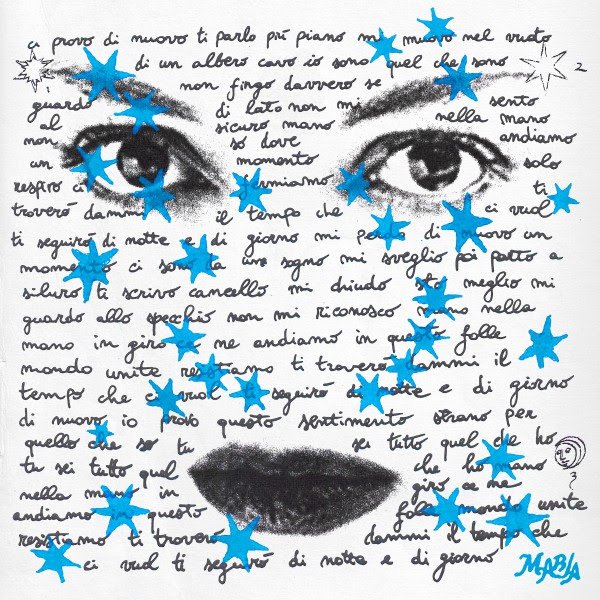 ci provo di nuovo ti parlo più piano mi muovo nel vuoto
di un albero cavo io sono quel che sono 2
1 non fingo davvero se
guardo di lato non mi sento
al sicuro mano nella mano
non so dove andiamo
un momento solo
respiro ci fermiamo ti
troverò dammi il tempo che ci vuol
ti seguirò di notte e di giorno mi perdo di nuovo un
momento ci sono fa un sogno mi sveglio poi patto a
siluro ti scrivo cancello mi chiudo sto meglio mi
guardo allo specchio non mi riconosco mano nella
mano in giro ce me andiamo in questo folle
mondo unite restiamo ti troverò dammi il
tempo che ci vuol ti seguirò di notte e di giorno
di nuovo io provo questo sentimento strano per
quello che so tu sei tutto quel che ho
tu sei tutto quel che ho mano 3
nella mano in giro ce ne
andiamo in questo folle mondo unite
restiamo ti troverò dammi il tempo che
ci vuol ti seguirò di notte e di giorno MABLA